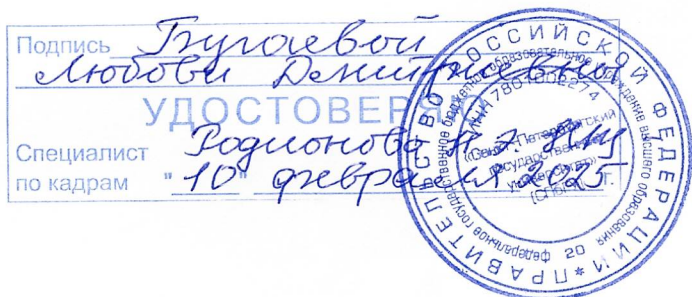 Подпись Бугаевой
Любови Дмитриевны
УДОСТОВЕРЯЮ
Специалист Родионова
по кадрам "10" февраля 2025 г.
ПРАВИТЕЛЬСТВО РОССИЙСКОЙ ФЕДЕРАЦИИ *
федеральное государственное бюджетное образовательное учреждение высшего образования
«Санкт-Петербургский
государственный
университет»
(СПбГУ)
20